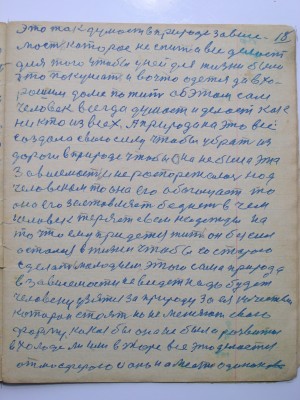 Это так думает в природе зависи- 18
мость которая не спит а все делает
для того чтобы у ней для жизни было
что покушать и во что одется да в хо-
рошем доме пожить об этом сам
человек всегда думает и делает как
никто из всех. А природа на это всё
создала свою силу чтобы убрать из
дороги в природе чтобы она не была эта
зависимость не распоряжалась над
человеком то она его обогащает то
она его заставляет беднеть в чем
человек теряет свои надежды на
то что ему придется жить он бессил
остался в жизни чтобы со старого
сделать молодым, этого сама природа
в зависимости не введет надо будет
человеку взятся за природу за ея качества
которая стоят но не меняют свою
форму, какая бы она не была развита
в холоде или в жаре все это делается
атмосферою и ань на месте одинаково